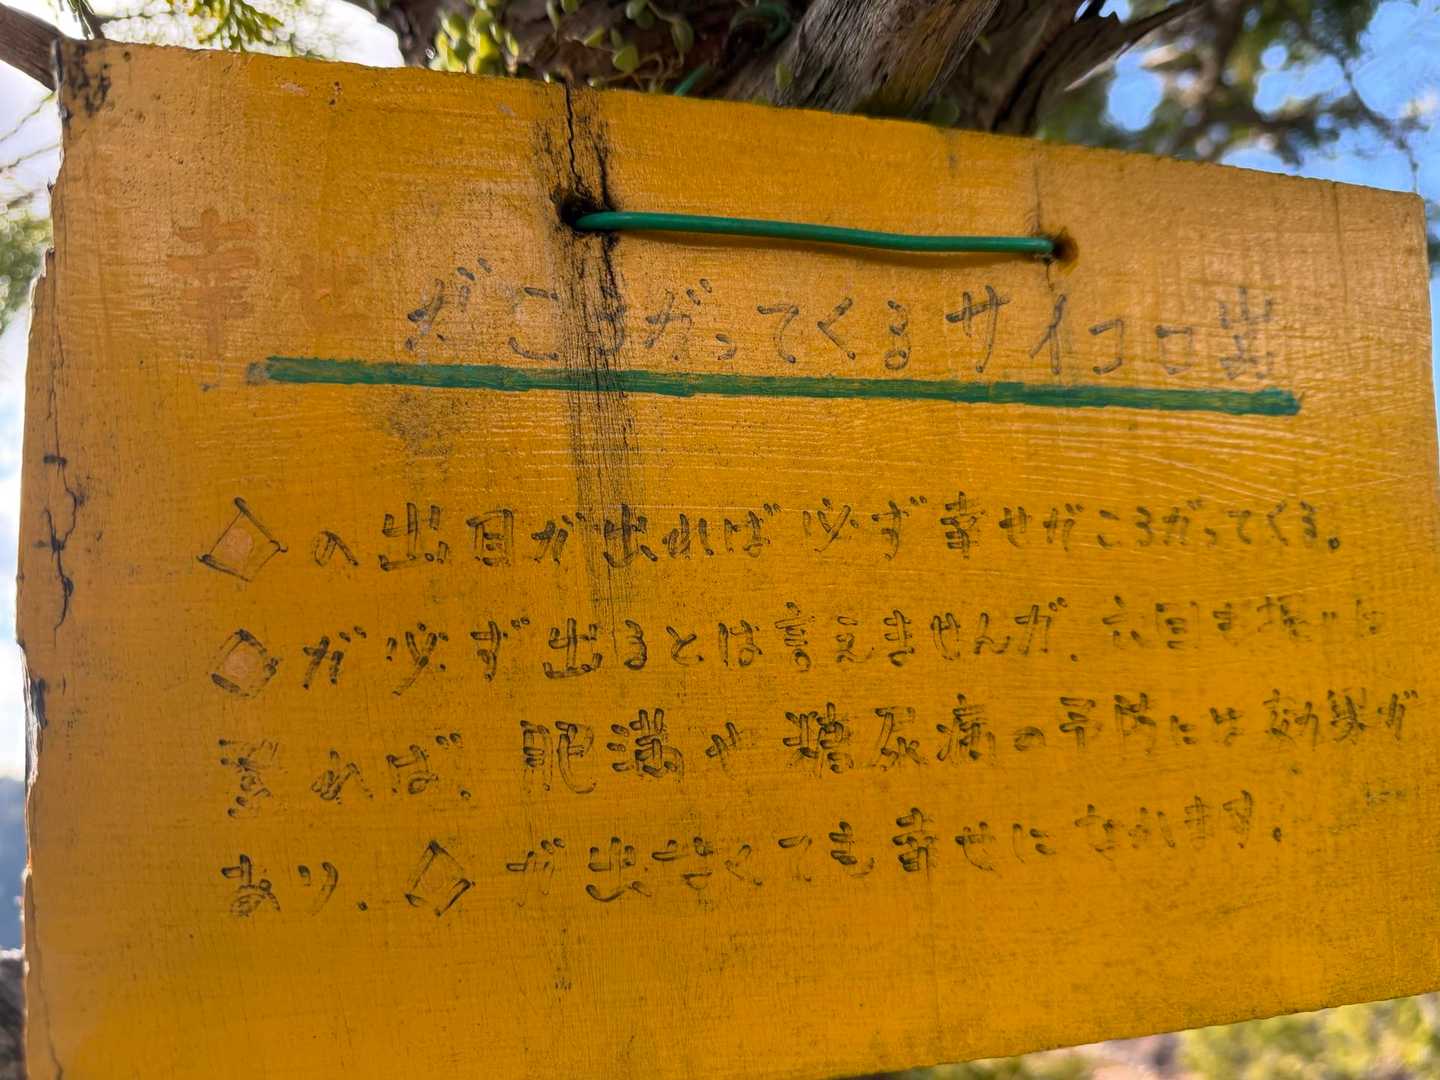 幸せがころがってくるサイコロ出
◇の出目が出れば必ず幸せがころがってくる。
◇が必ず出るとは言えませんが、六回も
登れば、肥満や糖尿病の予防には効果が
あり、◇が出なくても幸せになれます。